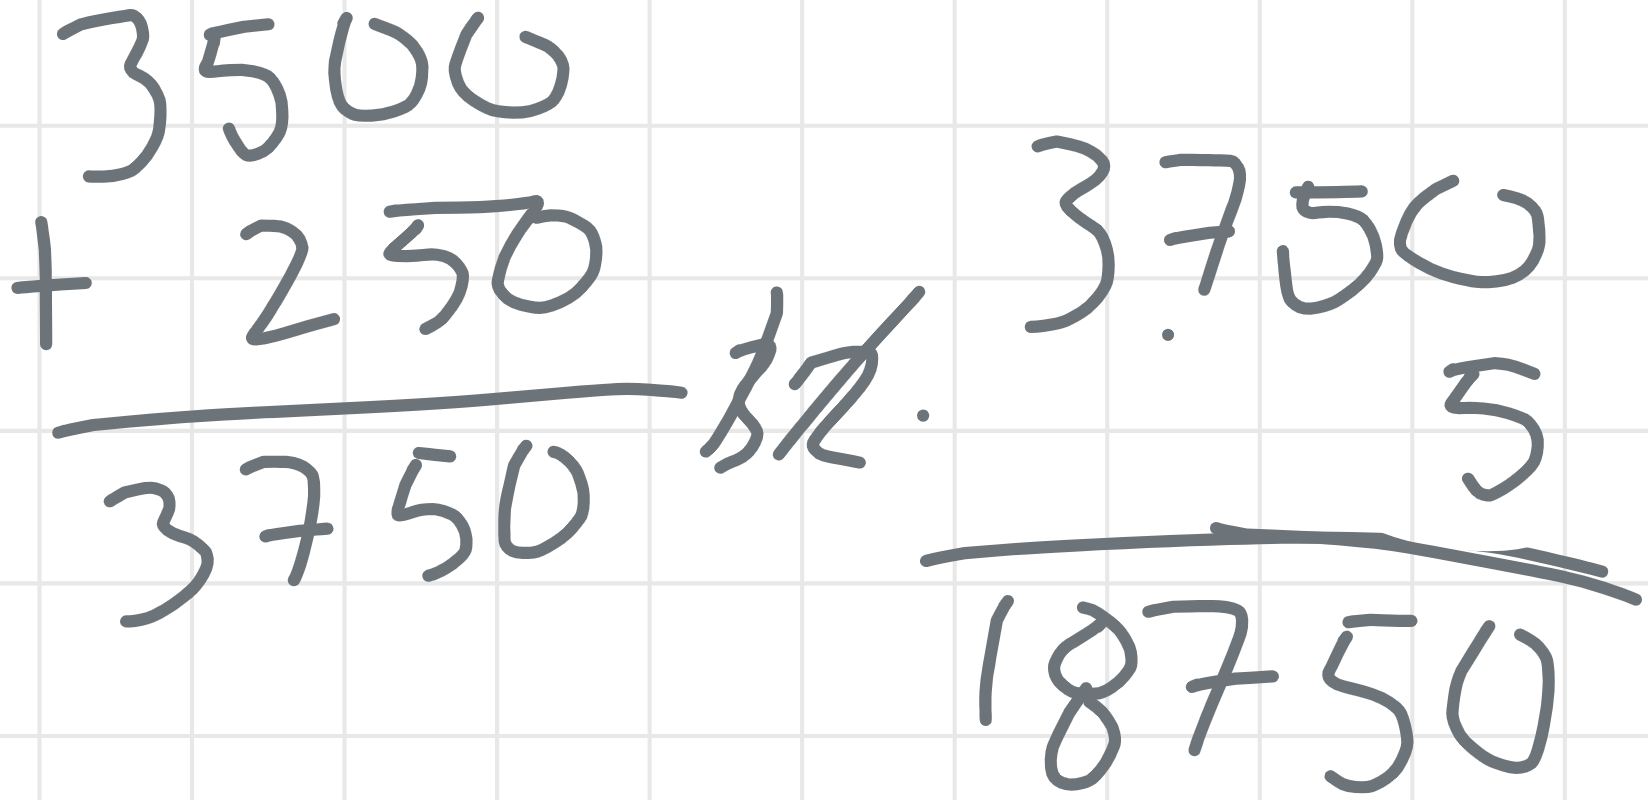 3500
+ 250
3750
3750
5
18750